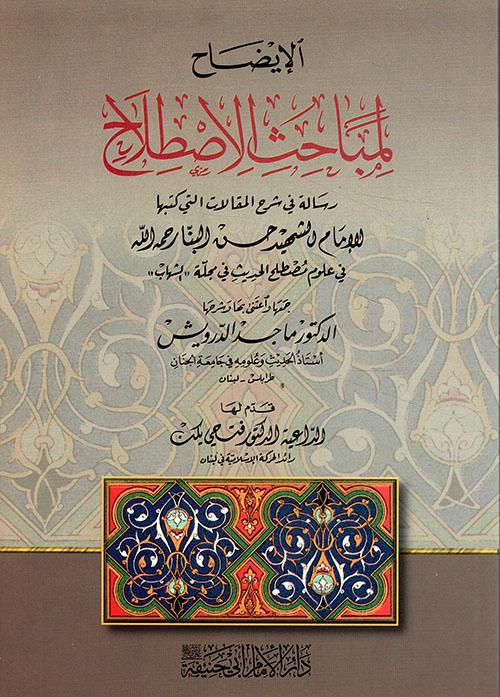 الإيضاح
لمباحث الاصطلاح
رسالة في شرح المقالات التي كتبها
الإمام الشهيد حسن البنا رحمه الله
في علوم مصطلح الحديث في مجلة «الشهاب»
جمعها واعتنى بها وشرحها
الدكتور ماجد الدرويش
أستاذ الحديث وعلومه في جامعة الجنان
طرابلس - لبنان
قدم لها
الداعية الدكتور فتحي يكن
رائد الحركة الإسلامية في لبنان
دار الإمام أبي حنيفة